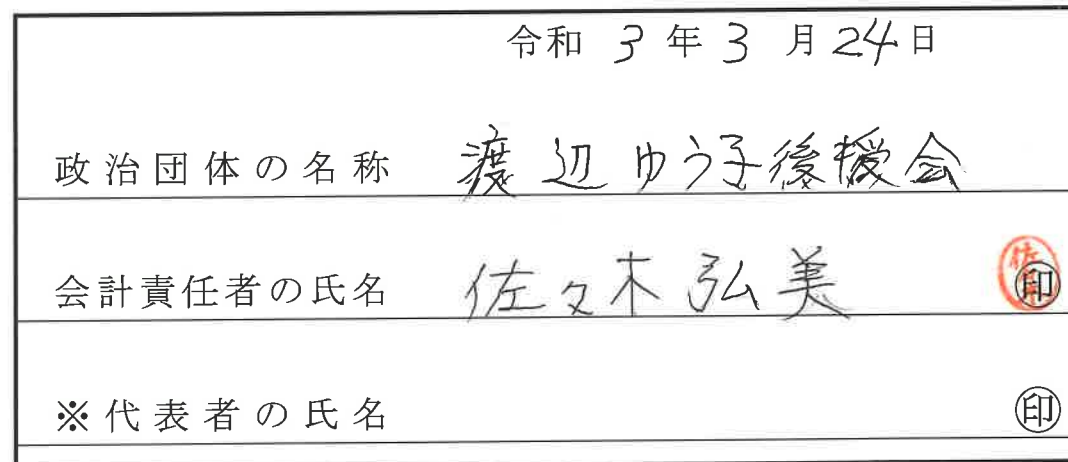 令和 3 年 3 月 24 日
政治団体の名称 渡辺ゆう子後援会
会計責任者の氏名 佐々木弘美 印
※代表者の氏名 印